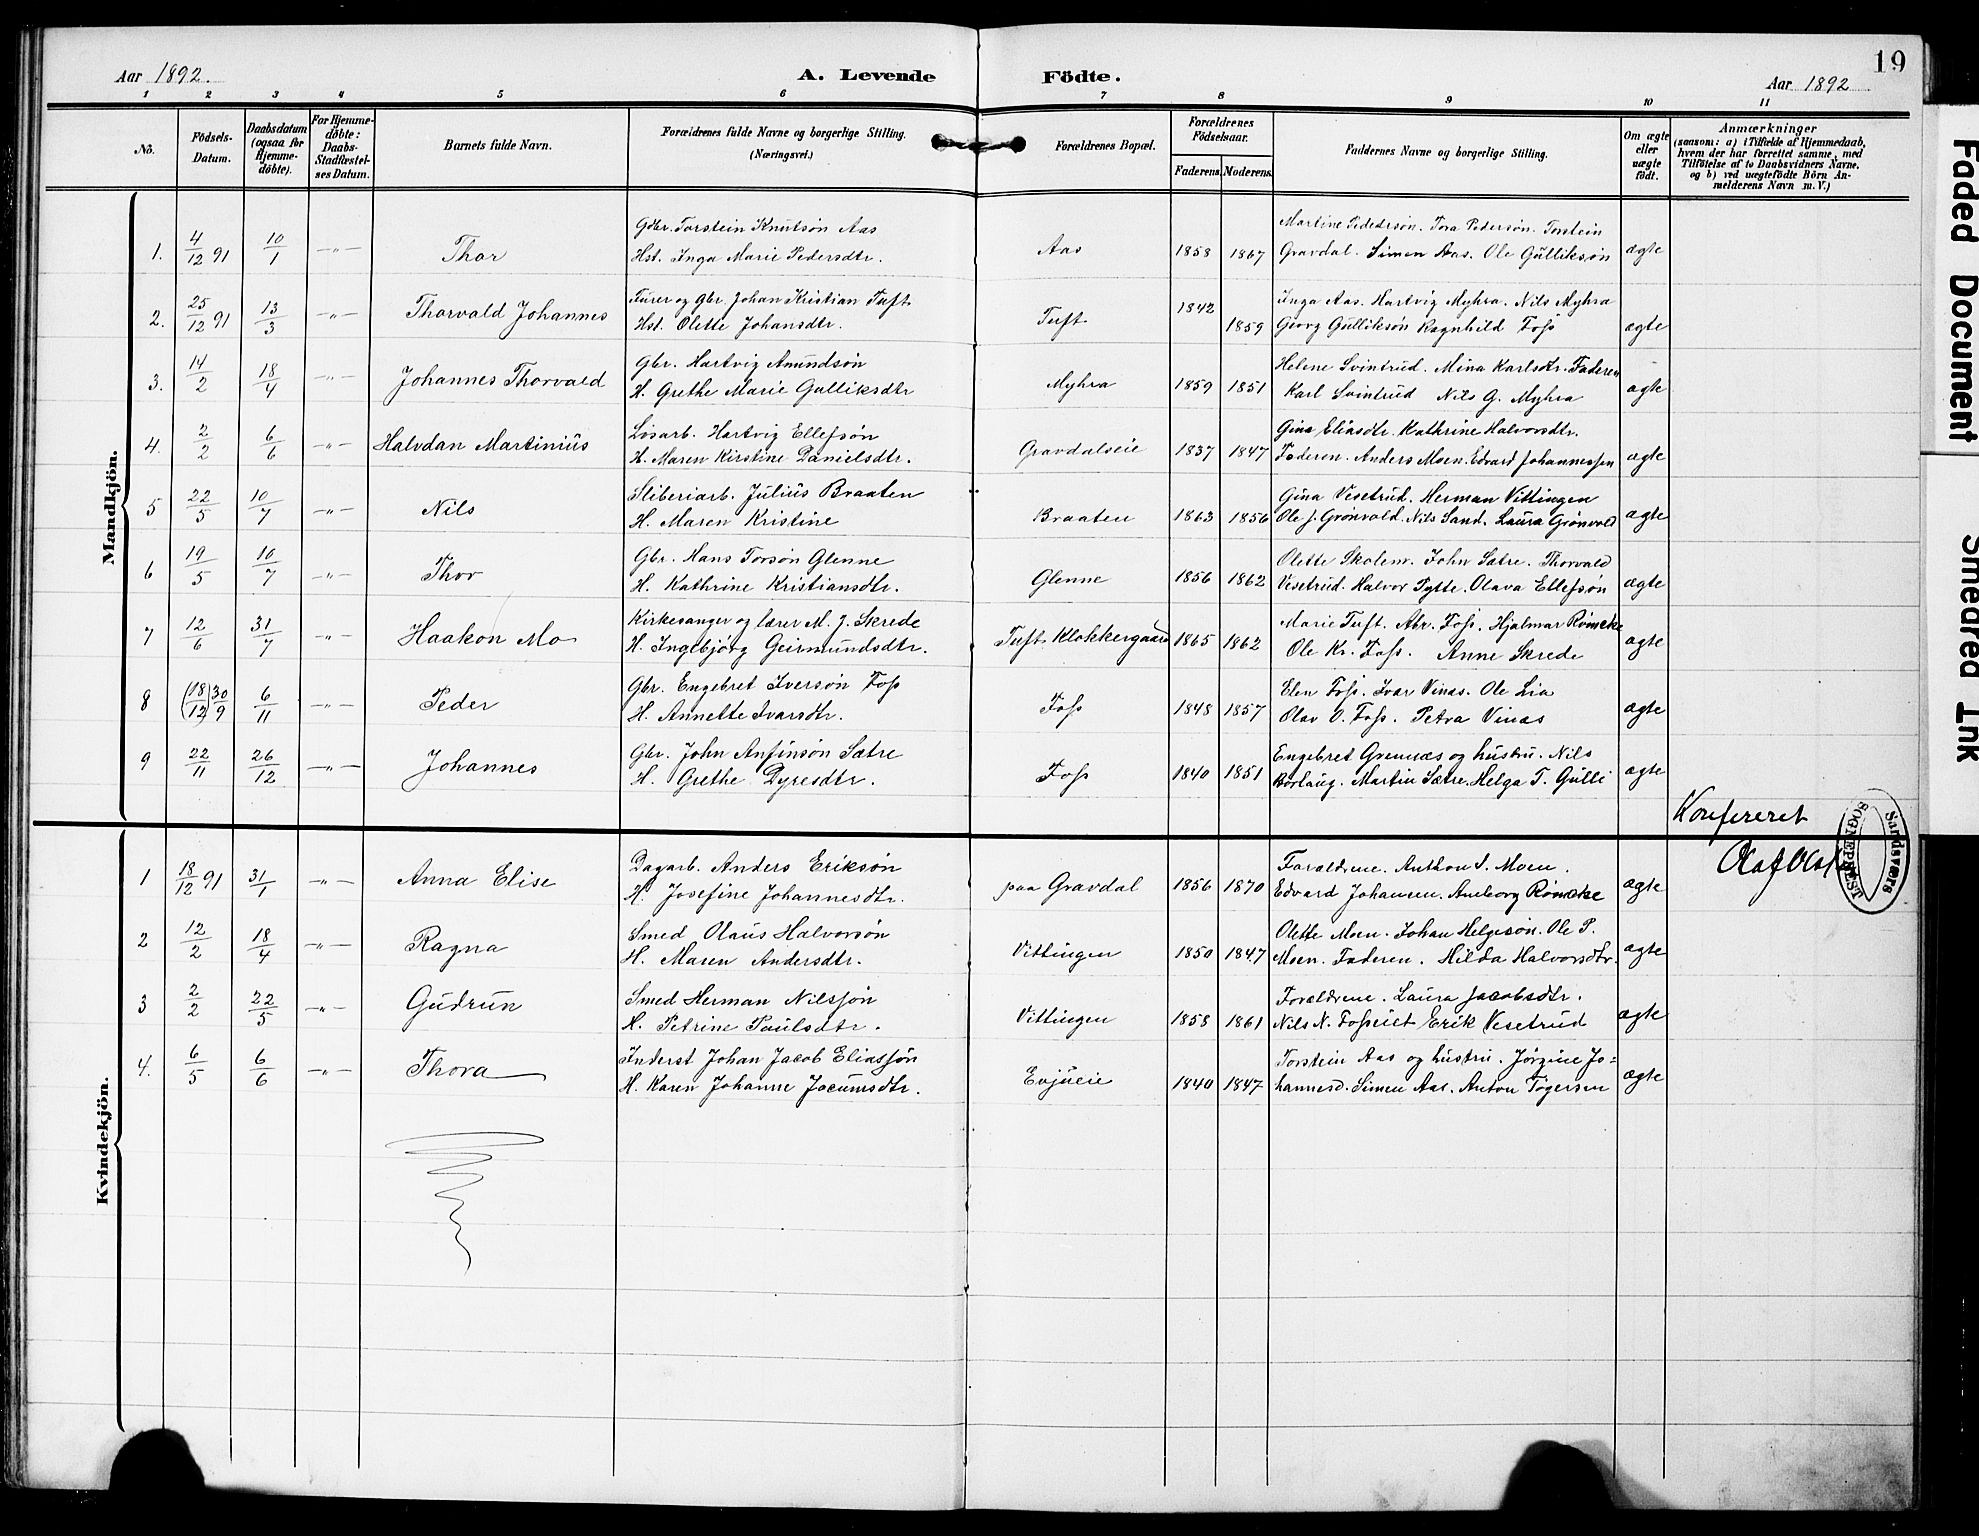 Aar 1892. A. Levende Födte. Aar 1892 19
1 2 3 4 5 6 7 8 9 10 11
No. Födsels-Datum. Daabsdatum (ogsaa for Hjemme-döbte). For Hjemme-döbte: Daabs-Stadfæstel-ses Datum. Barnets fulde Navn. Forældrenes fulde Navne og borgerlige Stilling. (Næringsvei.) Forældrenes Bopæl. Forældrenes Födselsaar. Faderens. Moderens. Faddernes Navne og borgerlige Stilling. Om ægte eller uægte födt. Anmærkninger (saasom: a) i Tilfælde af Hjemmedaab, hvem der har forrettet samme, med Tilföielse af to Daabsvidners Navne. og b) ved uægtefödte Börn An-melderens Navn m. V.)
Mandkjön.
1. 4/12 91 10/1 —"— Thor Gbr. Torstein Knutsön Aas Aas 1858 1867 Martine Pedersön. Tora Pedersön. Torstein ægte
Hst. Inga Marie Pedersdtr. Gravdal. Simen Aas. Ole Gulliksön
2. 25/12 91 13/3 —"— Thorvald Johannes Furer og Gbr. Johan Kristian Tuft Tuft 1842 1859 Inga Aas. Hartvig Myhra. Nils Myhra ægte
Hst. Olette Johansdtr. Georg Gulliksön Ragnhild Foss
3. 14/2 18/4 —"— Johannes Thorvald Gbr. Hartvig Amundsön Myhra 1859 1851 Helene Svintrud. Mina Karlsdtr. Faderen ægte
H. Grethe Marie Gulliksdtr Karl Svintrud Nils G. Myhra
4. 2/2 6/6 —"— Halvdan Martinius Løsarb. Hartvig Ellefsön Gravdalseie 1837 1847 Gina Eliasdtr. Kathrine Halvorsdtr. ægte
H. Maren Kirstine Danielsdtr. Faderen. Anders Moen. Edvard Johannessen
5 22/5 10/7 —"— Nils Sliberiarb. Julius Braaten Braaten 1863 1856 Gina Vesetrud. Herman Vittingen ægte
H. Maren Kristine Ole J. Grönvold. Nils Sand. Laura Grönvold
6 19/5 10/7 —"— Thor Gbr. Hans Torsön Glenne Glenne 1856 1862 Olette Skolem. John Sætre. Thorvald ægte
H. Kathrine Kristiansdtr. Vesetrud. Halvor Tytte. Olava Ellefsön
7 12/6 31/7 —"— Haakon Mo Kirkesanger og lærer M. J. Skrede Tuft Klokkergaard 1865 1862 Marie Tuft. Abr. Foss. Hjalmar Römcke ægte
H. Ingebjörg Geirmundsdtr. Ole Kr. Foss. Anne Skrede
8 (18/12) 30/9 6/11 —"— Peder Gbr. Engebret Iversön Foss Foss 1848 1857 Elen Foss. Ivar Vinæs. Ole Lia ægte
H. Annette Ivarsdtr. Olav O. Foss. Petra Vinæs
9 22/11 26/12 —"— Johannes Gbr. John Anfinsön Sætre Foss 1840 1851 Engebret Grennæs og hustru. Nils ægte
H. Grethe Dyresdtr. Borlaug. Martin Sætre. Helga T. Gulli
Konfereret
Kvindekjön.
1 18/12 91 31/1 —"— Anna Elise Dagarb. Anders Eriksön paa Gravdal 1856 1870 Forældrene. Anthon S. Moen. ægte
H. Josefine Johannesdtr. Edvard Johansen. Anborg Römcke
2 12/2 18/4 —"— Ragna Smed Olaus Halvorsön Vittingen 1850 1847 Olette Moen. Johan Helgesön. Ole P. ægte
H. Maren Andersdtr. Moen. Faderen. Hilda Halvorsdtr.
3 2/2 22/5 —"— Gudrun Smed Herman Nilssön Vittingen 1858 1861 Forældrene. Laura Jacobsdtr. ægte
H. Petrine Paulsdtr. Nils N. Fosseiet Erik Vesetrud
4. 6/5 6/6 —"— Thora Inderst Johan Jacob Eliassön Evjueie 1840 1847 Torstein Aas og hustru. Jörgine Jo= ægte
H. Karen Johanne Jocumsdtr. hannesd. Simen Aas. Anton Togersen
Sandsværs SOGNEPREST
Faded Document
Smeared Ink